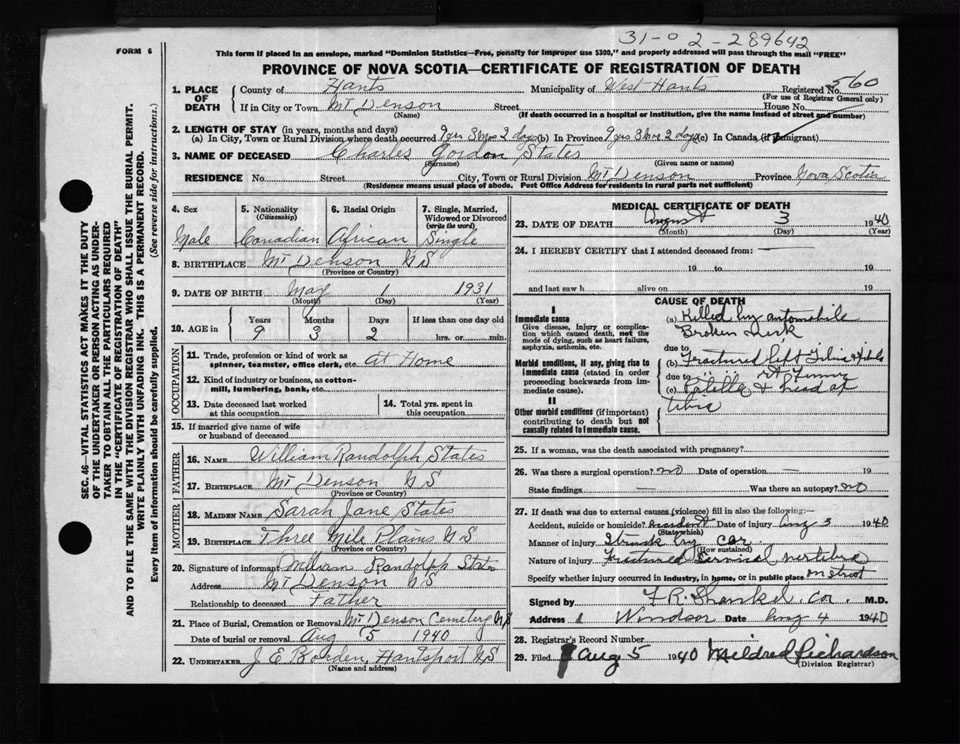 31-02-289642
FORM 6
This form if placed in an envelope, marked "Dominion Statistics—Free, penalty for improper use $300," and properly addressed will pass through the mail "FREE"
PROVINCE OF NOVA SCOTIA—CERTIFICATE OF REGISTRATION OF DEATH
1. PLACE OF DEATH
County of Hants Municipality of West Hants Registered No. 560
(For use of Registrar General only)
If in City or Town Mt Denson Street House No.
(Name) (If death occurred in a hospital or institution, give the name instead of street and number)
2. LENGTH OF STAY (in years, months and days)
(a) In City, Town or Rural Division where death occurred 9 yrs 3 mos 2 days (b) In Province 9 yrs 3 mos 2 days (c) In Canada (if immigrant)
3. NAME OF DECEASED Charles Gordon States
(Surname) (Given name or names)
RESIDENCE No. Street City, Town or Rural Division Mt Denson Province Nova Scotia
(Residence means usual place of abode. Post Office Address for residents in rural parts not sufficient)
4. Sex 5. Nationality (Citizenship) 6. Racial Origin 7. Single, Married, Widowed or Divorced (write the word)
Male Canadian African Single
8. BIRTHPLACE Mt Denson N S
(Province or Country)
9. DATE OF BIRTH May 1 1931
(Month) (Day) (Year)
10. AGE in Years Months Days If less than one day old
9 3 2 hrs. or min.
OCCUPATION
11. Trade, profession or kind of work as spinner, teamster, office clerk, etc. At Home
12. Kind of industry or business, as cotton-mill, lumbering, bank, etc.
13. Date deceased last worked at this occupation 14. Total yrs. spent in this occupation
15. If married give name of wife or husband of deceased
FATHER
16. NAME William Randolph States
17. BIRTHPLACE Mt Denson N S
(Province or Country)
MOTHER
18. MAIDEN NAME Sarah Jane States
19. BIRTHPLACE Three Mile Plains N S
(Province or Country)
20. Signature of informant William Randolph States
Address Mt Denson N S
Relationship to deceased Father
21. Place of Burial, Cremation or Removal Mt Denson Cemetery N S
Date of burial or removal Aug 5 1940
22. UNDERTAKER J E Borden, Hantsport N S
(Name and address)
MEDICAL CERTIFICATE OF DEATH
23. DATE OF DEATH August 3 1940
(Month) (Day) (Year)
24. I HEREBY CERTIFY that I attended deceased from:
19 to 19
and last saw h alive on 19
CAUSE OF DEATH
I
Immediate cause
Give disease, injury or complication which caused death, not the mode of dying, such as heart failure, asphyxia, asthenia, etc.
(a) Killed by automobile
Broken Neck
due to
Morbid conditions, if any, giving rise to immediate cause (stated in order proceeding backwards from immediate cause).
(b) Fractured left Tibia &
due to " " rt Femur
(c) Patella & head of
tibia
II
Other morbid conditions (if important) contributing to death but not causally related to immediate cause.
25. If a woman, was the death associated with pregnancy?
26. Was there a surgical operation? no Date of operation — 19
State findings — Was there an autopsy? no
27. If death was due to external causes (violence) fill in also the following:—
Accident, suicide or homicide? Accident Date of injury Aug 3 1940
(State which)
Manner of injury Struck by car
(How sustained)
Nature of injury Fractured Cervical vertibra
Specify whether injury occurred in industry, in home, or in public place on street
Signed by F R Shankel, Cor. M.D.
Address Windsor Date Aug 4 1940
28. Registrar's Record Number
29. Filed Aug 5 1940 Mildred Richardson
(Division Registrar)
SEC. 46—VITAL STATISTICS ACT MAKES IT THE DUTY
OF THE UNDERTAKER OR PERSON ACTING AS UNDER-
TAKER TO OBTAIN ALL THE PARTICULARS REQUIRED
IN THE "CERTIFICATE OF REGISTRATION OF DEATH"
AND TO FILE THE SAME WITH THE DIVISION REGISTRAR WHO SHALL ISSUE THE BURIAL PERMIT.
WRITE PLAINLY WITH UNFADING INK. THIS IS A PERMANENT RECORD.
Every item of information should be carefully supplied. (See reverse side for instructions.)